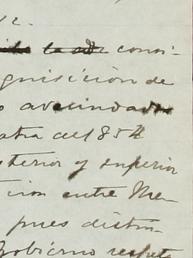 consi-
quisición de
o avecindado
atra del 854
sterior y superior
tion entre Me-
pues distin-
Gobierno respeto